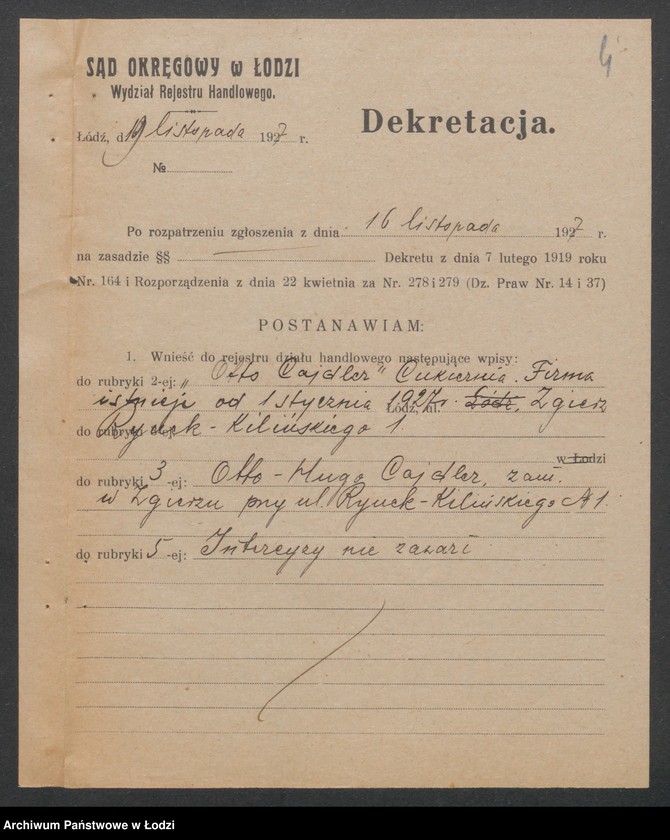 4
SĄD OKRĘGOWY w ŁODZI
Wydział Rejestru Handlowego.
Dekretacja.
Łódź, d. 19 listopada 1927 r.
№
Po rozpatrzeniu zgłoszenia z dnia 16 listopada 1927 r.
na zasadzie §§ — Dekretu z dnia 7 lutego 1919 roku
Nr. 164 i Rozporządzenia z dnia 22 kwietnia za Nr. 278 i 279 (Dz. Praw Nr. 14 i 37)
POSTANAWIAM:
1. Wnieść do rejestru działu handlowego następujące wpisy:
do rubryki 2-ej: „Otto Cajdler” Cukiernia. Firma
istnieje od 1 stycznia 1927 r. Łódź, ul. Łódź, Zgierz
do rubryki -ej: Rynek-Kilińskiego 1
w Łodzi
do rubryki 3 -ej: Otto-Hugo Cajdler, zam.
w Zgierzu przy ul. Rynek-Kilińskiego № 1.
do rubryki 5 -ej: Intercyzy nie zawarł
Archiwum Państwowe w Łodzi